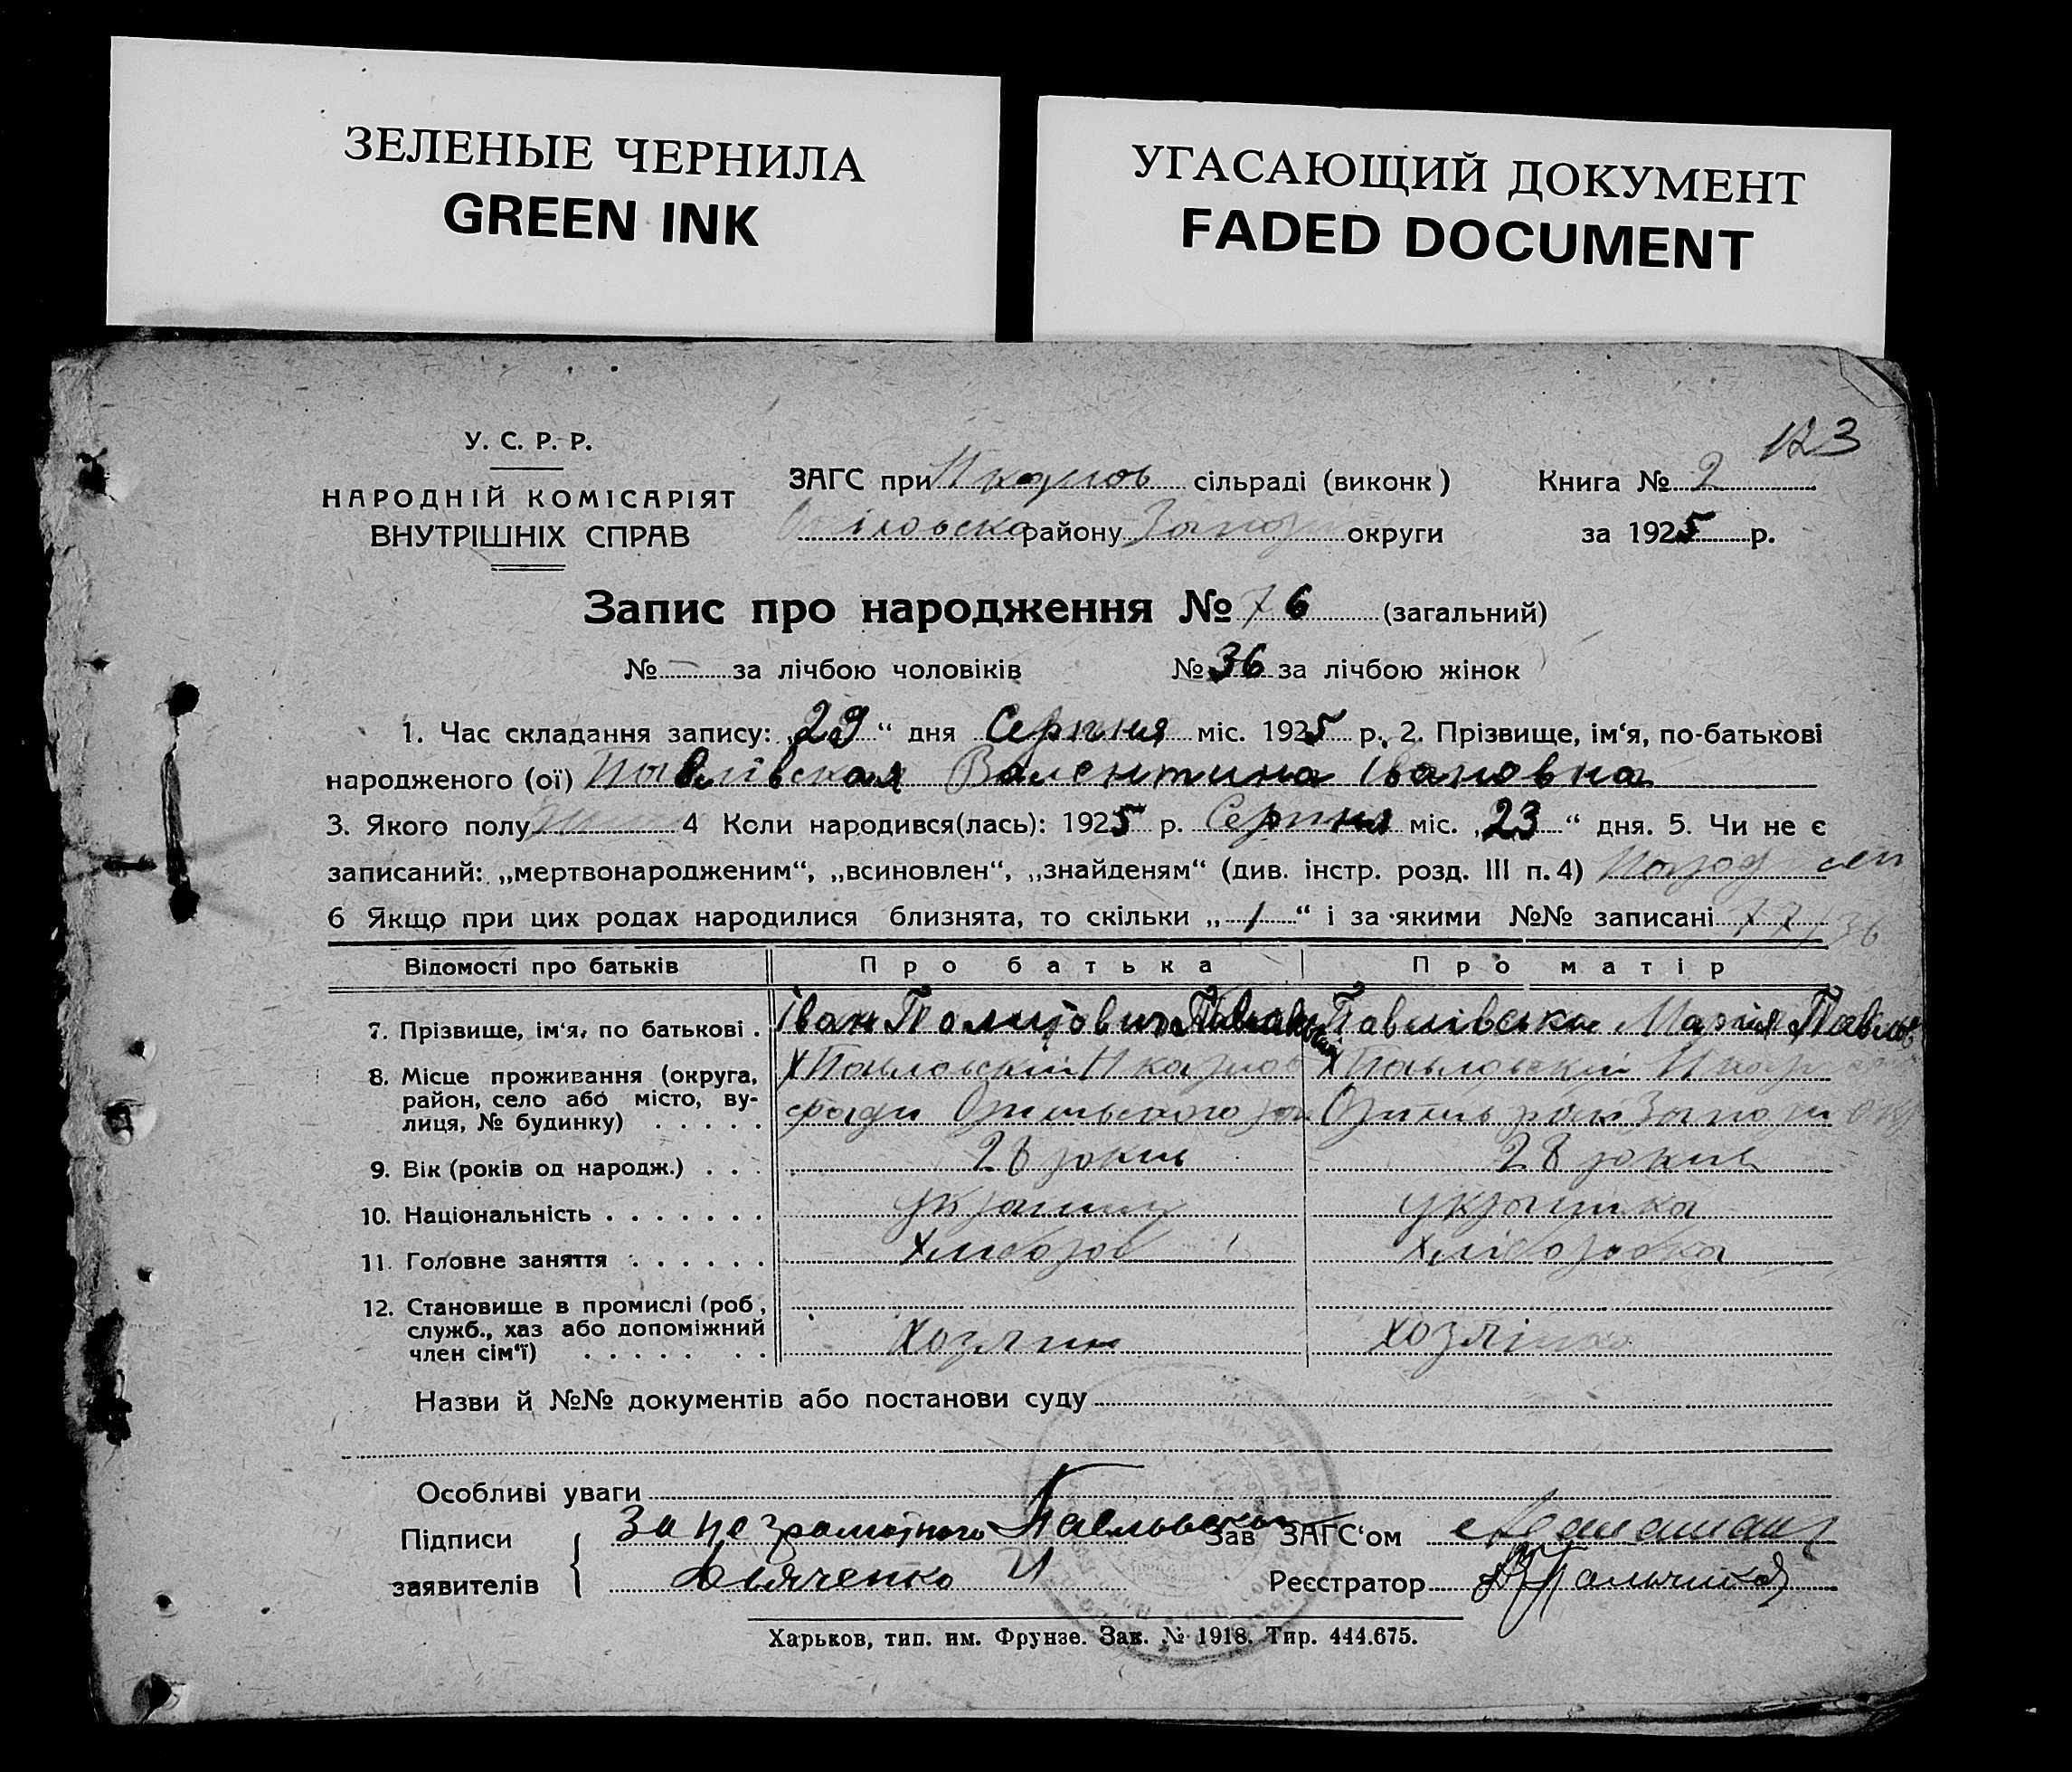 ЗЕЛЕНЫЕ ЧЕРНИЛА
GREEN INK
УГАСАЮЩИЙ ДОКУМЕНТ
FADED DOCUMENT
123
У. С. Р. Р.
НАРОДНІЙ КОМІСАРІЯТ
ВНУТРІШНІХ СПРАВ
ЗАГС при сільраді (виконк)
району округи
Книга № 2
за 1925 р.
Запис про народження № 76 (загальний)
№ — за лічбою чоловіків № 36 за лічбою жінок
1. Час складання запису: „29“ дня Серпня міс. 1925 р. 2. Прізвище, ім‘я, по-батькові
народженого (ої) Павлівская Валентина Івановна
3. Якого полу 4 Коли народився(лась): 1925 р. Серпня міс. „23“ дня. 5. Чи не є
записаний: „мертвонародженим“, „всиновлен“, „знайденям“ (див. інстр. розд. III п. 4)
6 Якщо при цих родах народилися близнята, то скільки „1“ і за якими №№ записані 77 36
Відомості про батьків Про батька Про матір
7. Прізвище, ім‘я, по батькові . Іван Павлівська Марія
8. Місце проживання (округа, Х Павловскій Х Павловскій
район, село або місто, ву-
лиця, № будинку) . . . . .
9. Вік (років од народж.) . . . 28 років 28 років
10. Національність . . . . . . . українець українка
11. Головне заняття . . . . . . хлібороб хліборобка
12. Становище в промислі (роб,
служб., хаз або допоміжний
член сім‘ї) . . . . . . . хозяин хозяінка
Назви й №№ документів або постанови суду
Особливі уваги
Підписи За неграмотного Зав ЗАГС‘ом
заявителів Дяченко И Реєстратор
Харьков, тип. им. Фрунзе. Зак. № 1918. Тир. 444.675.